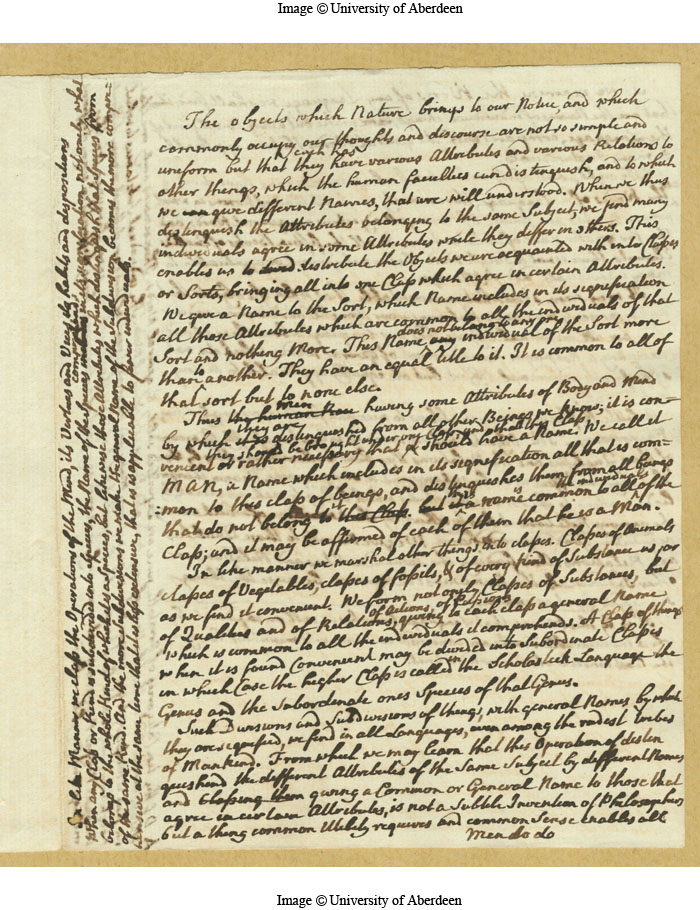 Image © University of Aberdeen
The objects which Nature brings to our Notice and which
commonly occupy our thoughts and discourse are not so simple and
uniform but that they each has have various Attributes and various Relations to
other things, which the human faculties can distinguish, and to which
we can give different Names, that are well understood. When we thus
distinguish the Attributes belonging to the same Subject, we find many
individuals agree in some Attributes while they differ in others. This
enables us to divid distribute the Objects we are acquainted with into Classes
or Sorts, bringing all into one Class which agree in certain Attributes.
We give a Name to the Sort, which Name includes in its signification
all those Attributes which are common to all the individuals of that
Sort and nothing More. This Name does not belong to any one any individual of the Sort more
than to another. They have an equal title to it. It is common to all of
that sort but to none else.
Thus the human Race Men having some Attributes of Body and Mind
by which they are distinguished from all other Beings we know; it is con-
venient or rather necessary that they should be brought under one Class and that this Class should have a Name. We call it
MAN, a Name which includes in its signification all that is com-
:mon to this class of beings, and distinguishes them from all beings
that do not belong to this Class. but it is a name common to all the individuals of the
Class; and it may be affirmed of each of them that he is a Man.
In like manner we marshal other things into classes. Classes of Animals
classes of Vegetables, classes of fossils, & of every kind of Substance as, or
as we find it convenient. We form not only Classes of Substances, but
of Qualities and of Relations, of Actions, of Passions, giving to each class a general Name
which is common to all the individuals it comprehends. A Class of things
when it is found Convenient may be divided into Subordinate Classes
in which Case the higher Class is called in the Scholastick Language the
Genus and the Subordinate ones Species of that Genus.
Such Divisions and Subdivisions of things, with general Names by which
they are signified, we find in all Languages, even among the rudest tribes
of Mankind. From which we may learn that this Operation of distin
guishing the different Attributes of the Same Subject by different Names
and Classing them giving a Common or General Name to those that
agree in certain Attributes, is not a Subtle Invention of Philosophers
but a thing common Utility requires and common Sense enables all
Men do do
In like Manner we class the Operations of the Mind, its Virtues and Vices, its habits and dispositions
When any Class or Kind is subdivided into species, the Name of the Species comprehends in its signification not only what
belongs to the whole Kind of which it is a species, but likewise those Attributes which distinguish that species from
of the same Kind. And the more Subdivisions we make the general Name of the Subdivision becomes the more compre-
hensive at the same time that it is less extensive, that is applicable to fewer individuals.
Image © University of Aberdeen